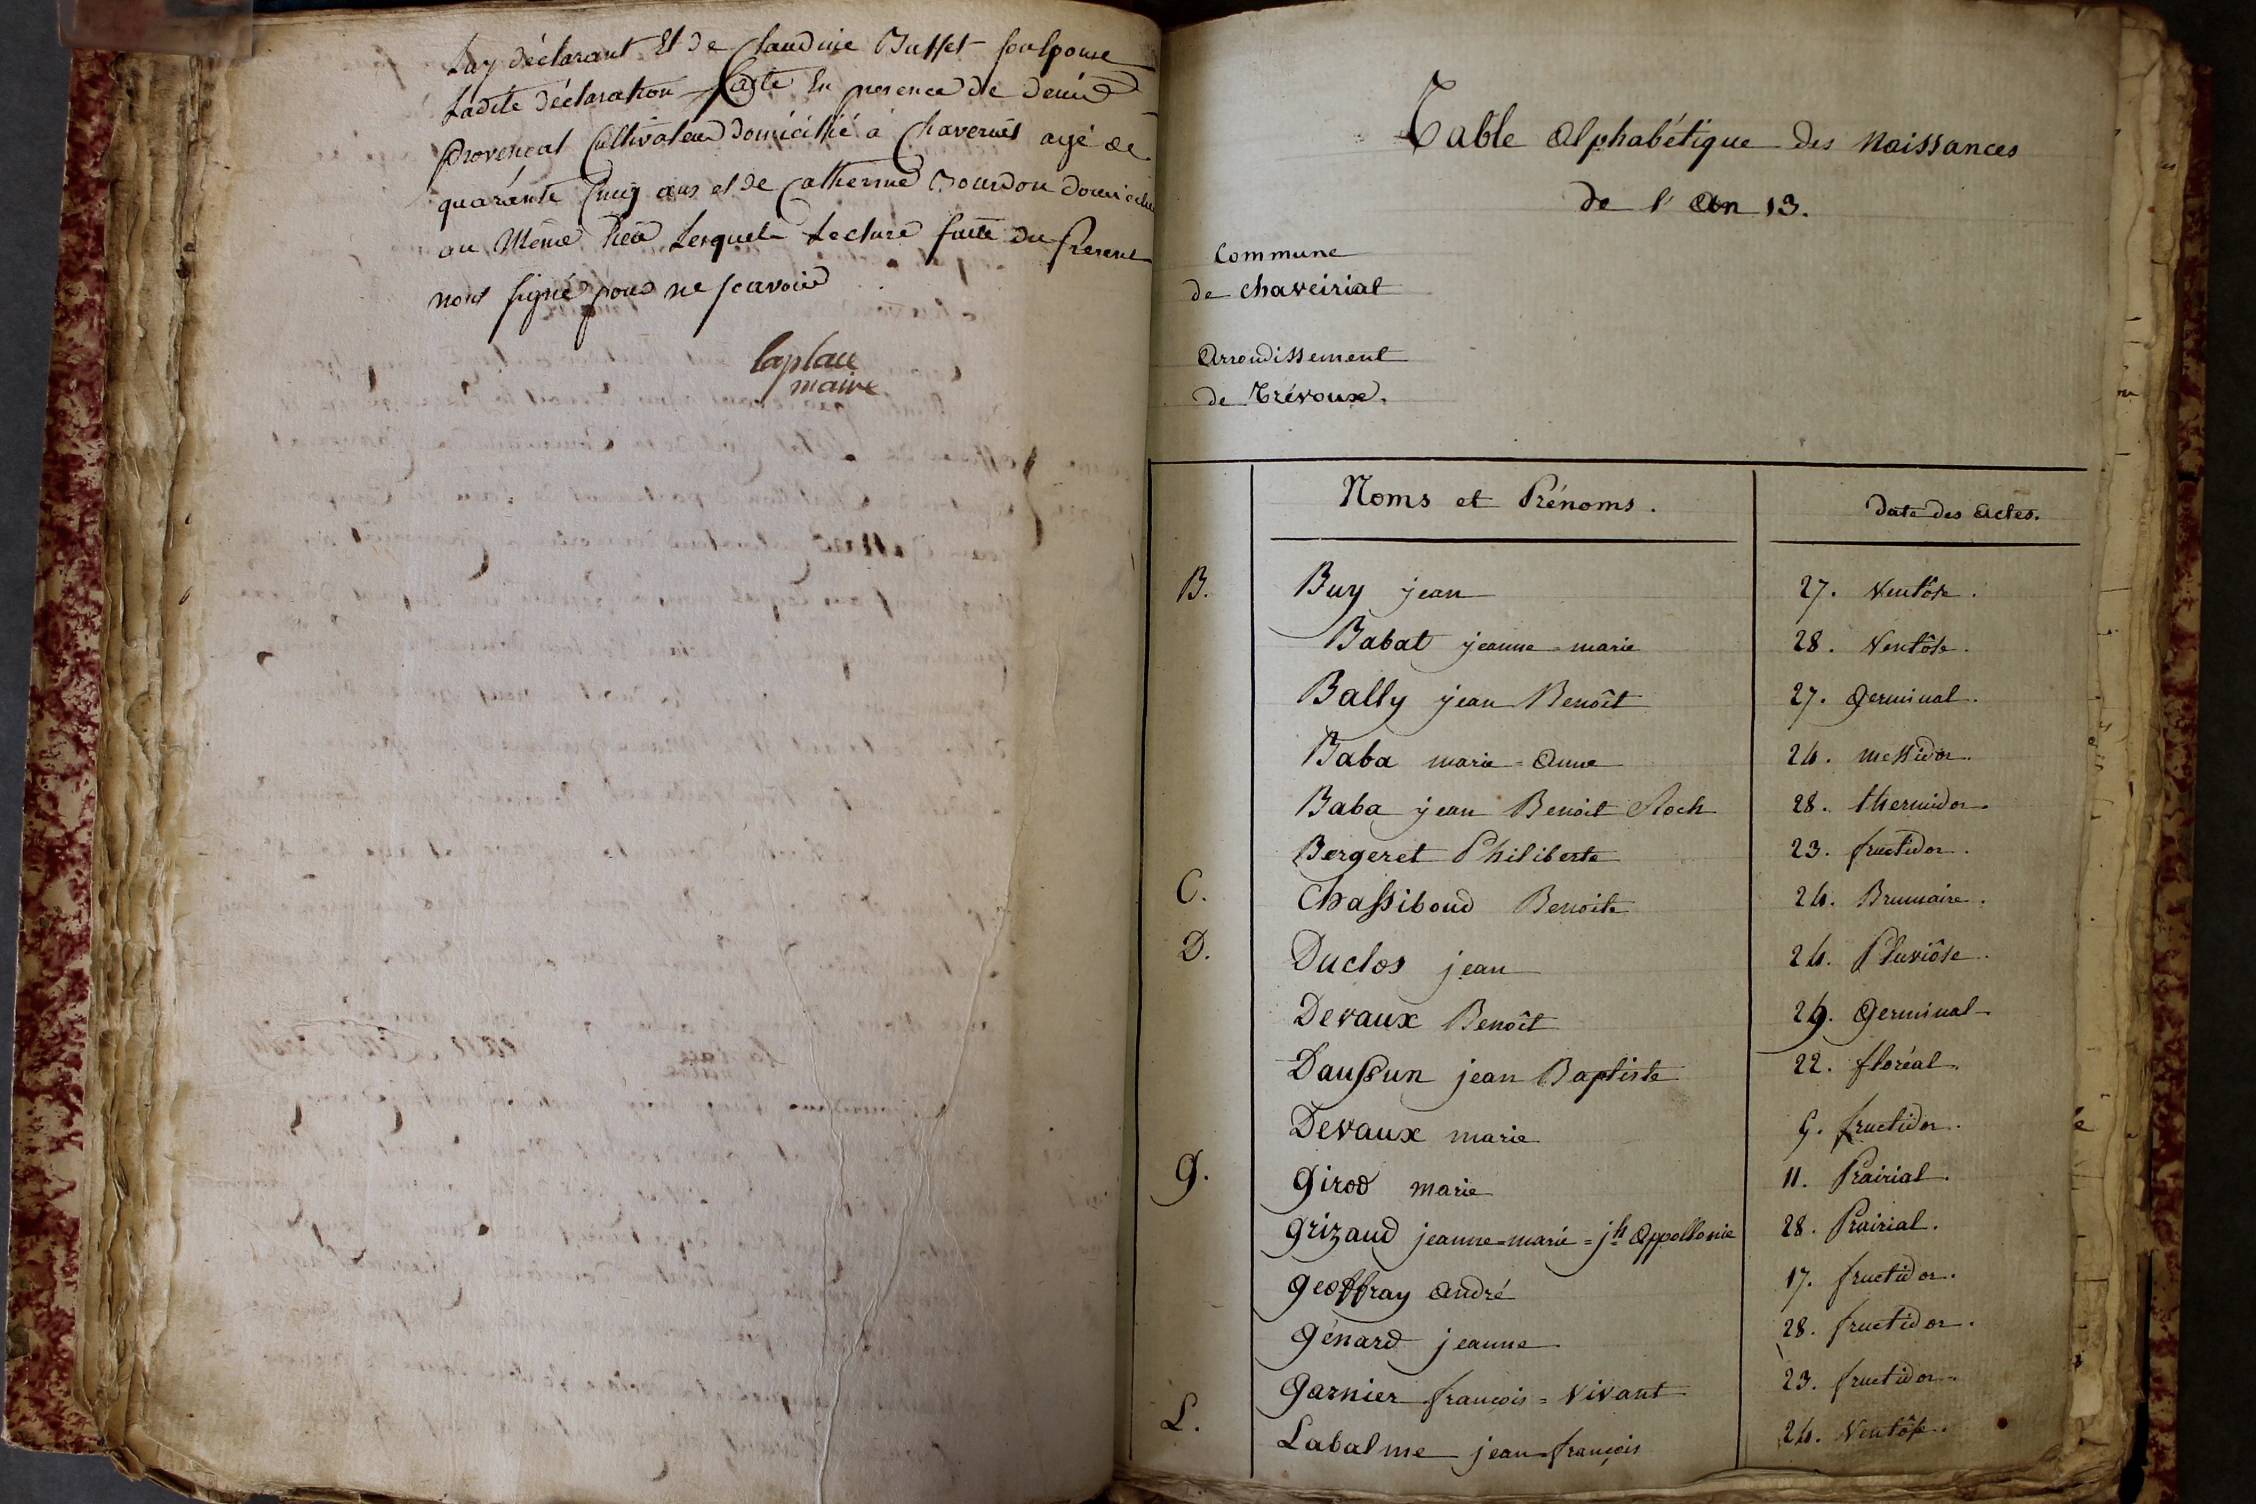 Luy déclarant Et de Claudine Buffet son Epouse
Ladite déclaration faite En presence de denis
Provencat Cultivateur domicilié a Chavernet agé de
quarante Cinq ans et de Catherine Bourdon domicilié
au Même lieu Lesquels Lecture faitte du present
nont signé pour ne scavoir
laplace
maire
Table Alphabétique des Naissances
de l'An 13.
Commune
de Chaveirial
Arrondissement
de Trévoux.
Noms et Prénoms.
Date des Actes.
B. Buy jean 27. Ventôse.
Babat jeanne=marie 28. Ventôse.
Bally jean Benoît 27. Germinal.
Baba marie=Anne 24. Messidor.
Baba jean Benoit Roch 28. thermidor.
Bergeret Philiberte 23. fructidor.
C. Chassiboud Benoite 24. Brumaire.
D. Duclos jean 24. Pluviôse.
Devaux Benoît 29. Germinal
Daussun jean Baptiste 22. floréal.
Devaux marie 9. fructidor.
G. Girod marie 11. Prairial.
Grizaud jeanne=marie=jh Appollonie 28. Prairial.
Geoffray André 17. fructidor.
Génard jeanne 28. fructidor.
Garnier françois=Vivant 23. fructidor.
L. Labalme jean françois 24. Ventôse.